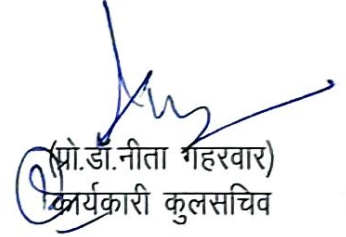 (प्रो.डॉ.नीता गहरवार)
कार्यकारी कुलसचिव